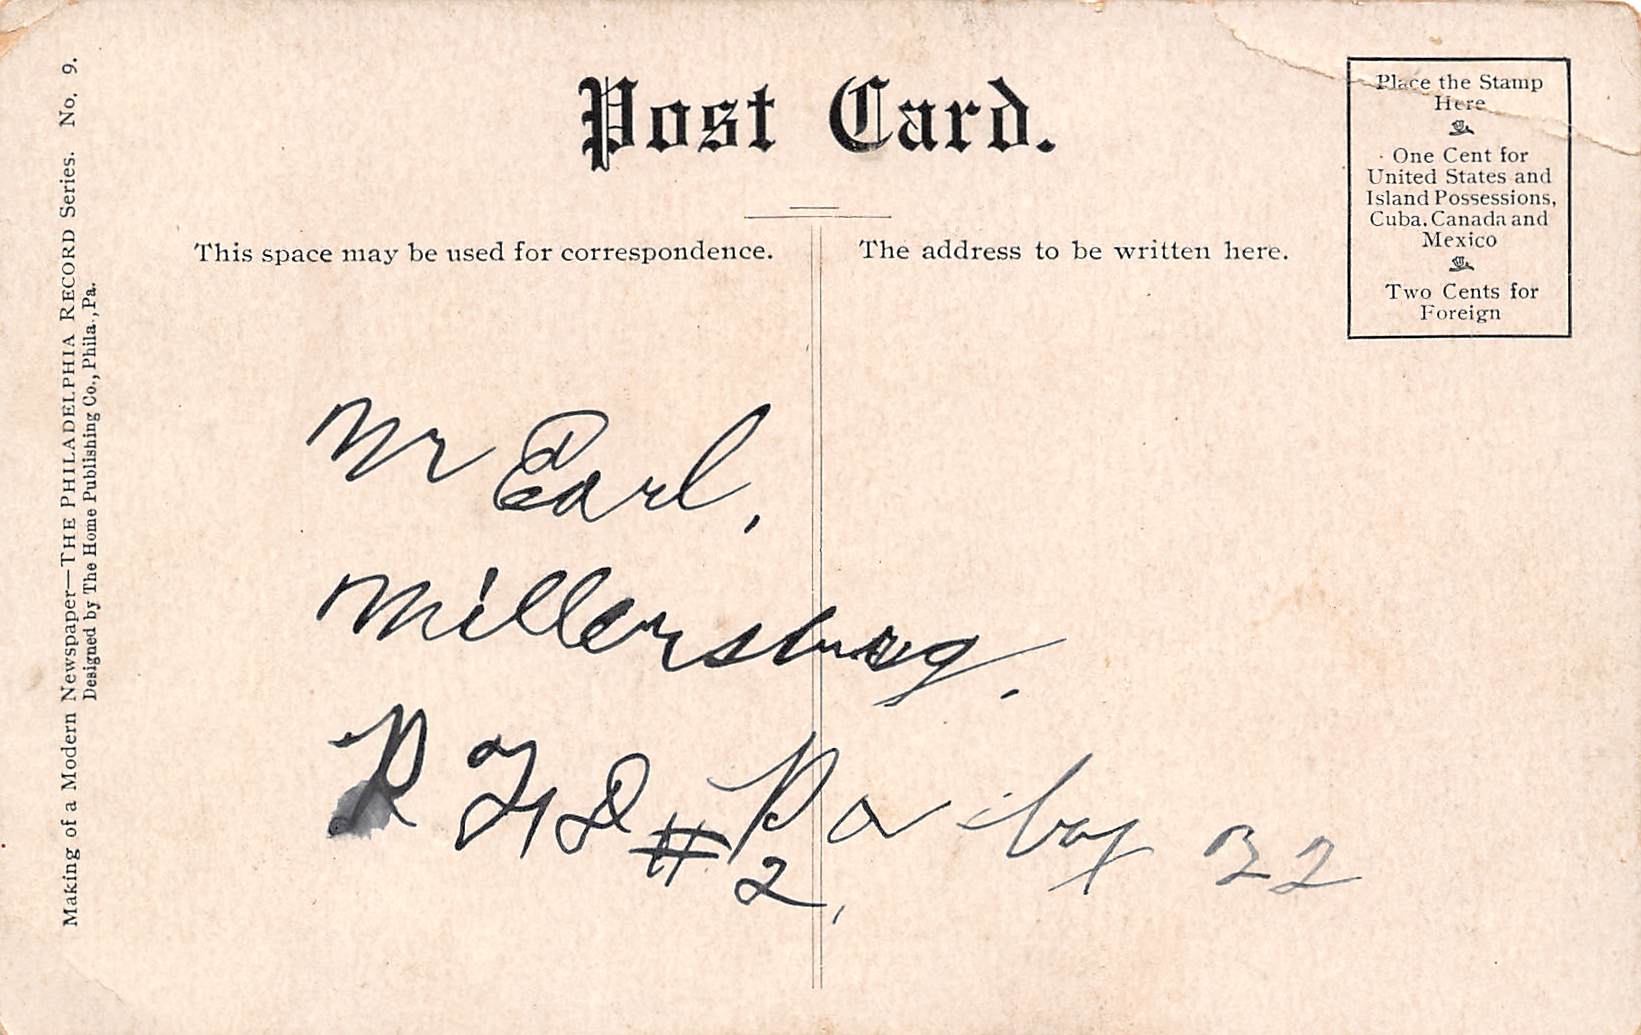 Making of a Modern Newspaper—THE PHILADELPHIA RECORD Series. No. 9.
Designed by The Home Publishing Co., Phila., Pa.
Post Card.
This space may be used for correspondence.
The address to be written here.
Place the Stamp
Here
One Cent for
United States and
Island Possessions,
Cuba, Canada and
Mexico
Two Cents for
Foreign
Mr Earl,
Millersburg.
R F D # 2, Pa box 22